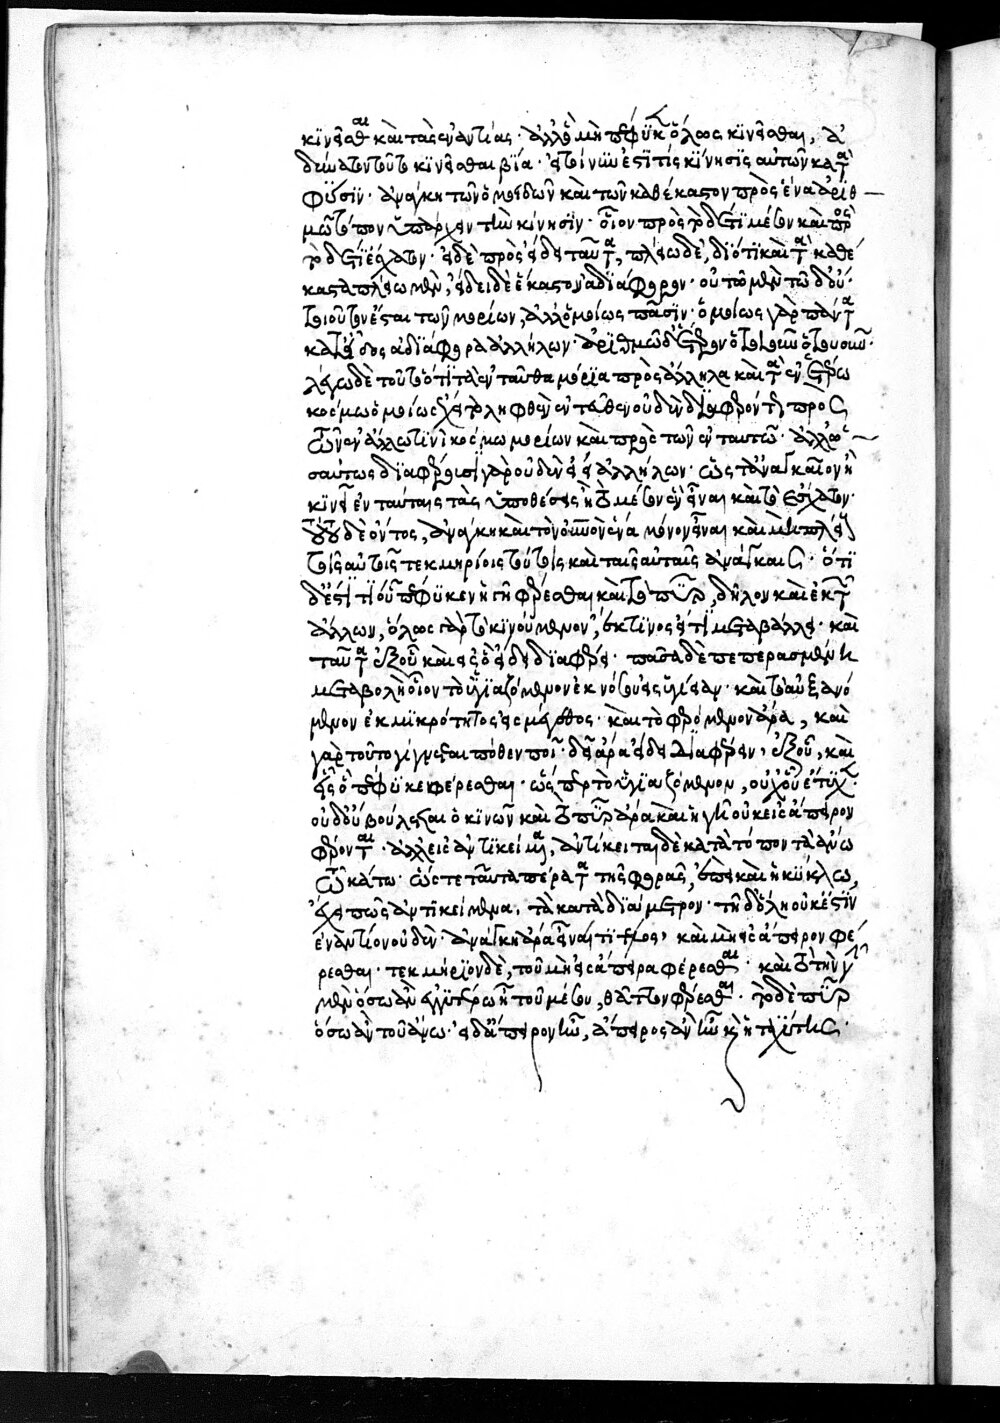 κινεῖσθαι καὶ τὰς ἐναντίας· ἀλλὰ μὴ πέφυκεν ὅλως κινεῖσθαι, ἀ
δύνατον τοῦτο κινεῖσθαι βίᾳ· εἰ τοίνυν ἐστί τις κίνησις αὐτῶν κατὰ
φύσιν· ἀνάγκη τῶν ὁμοειδῶν καὶ τῶν καθέκαστον πρὸς ἕνα ἀριθ
μῷ τόπον ὑπάρχειν τὴν κίνησιν· οἷον πρὸς τόδε τι μέσον καὶ πρὸς
τόδε τι ἔσχατον· εἰ δὲ πρὸς εἴδει ταῦτα, πλείω δὲ, διότι καὶ τὰ καθέ
καστα πλείω μὲν, εἴδει δὲ ἕκαστον ἀδιάφορον· οὐ τῷ μὲν τῷ δ' οὐ
τοιοῦτον ἔσται τῶν μορίων, ἀλλ' ὁμοίως πᾶσιν· ὁμοίως γὰρ πάντα
κατ' εἶδος ἀδιάφορα ἀλλήλων· ἀριθμῷ δ' ἕτερον ὁτιοῦν ὁτουοῦν·
λέγω δὲ τοῦτο ὅτι τὰ ἐνταῦθα μόρια πρὸς ἄλληλα καὶ τὰ ἐν ἑτέρῳ
κόσμῳ ὁμοίως ἔχει τὸ ληφθὲν ἐντεῦθεν οὐδὲν διαφερόντως πρὸς
τῶν ἐν ἄλλῳ τινὶ κόσμῳ μορίων καὶ πρὸς τῶν ἐν ταυτῷ· ἀλλ' ὡ
σαύτως διαφέρουσι γὰρ οὐδὲν εἴδει ἀλλήλων· ὥστ' ἀναγκαῖον ἢ
κινεῖν ταύτας τὰς ὑποθέσεις ἢ τὸ μέσον ἓν εἶναι καὶ τὸ ἔσχατον·
τούτου δὲ ὄντος, ἀνάγκη καὶ τὸν οὐρανὸν ἕνα μόνον εἶναι καὶ μὴ πλείους
τοῖς αὐτοῖς τεκμηρίοις τούτοις καὶ ταῖς αὐταῖς ἀνάγκαις· ὅτι
δ' ἔστι τι οὗ πέφυκεν ἡ γῆ φέρεσθαι καὶ τὸ πῦρ, δῆλον καὶ ἐκ τῶν
ἄλλων, ὅλως γὰρ τὸ κινούμενον, ἔκ τινος εἴς τι μεταβάλλει· καὶ
ταῦτα ἐξ οὗ καὶ εἰς ὃ εἴδει διαφέρει· πᾶσα δὲ πεπερασμένη
μεταβολὴ οἷον τὸ ὑγιαζόμενον ἐκ νόσου εἰς ὑγίειαν· καὶ τὸ αὐξανό
μενον ἐκ μικρότητος εἰς μέγεθος· καὶ τὸ φερόμενον ἄρα, καὶ
γὰρ τοῦτο γίγνεται πόθεν ποῖ· δεῖ ἄρα εἴδει διαφέρειν, ἐξ οὗ, καὶ
εἰς ὃ πέφυκε φέρεσθαι· ὥσπερ τὸ ὑγιαζόμενον, οὐχ οὗ ἔτυχεν
οὐδ' οὗ βούλεται ὁ κινῶν καὶ τὸ πῦρ ἄρα καὶ ἡ γῆ οὐκ εἰς ἄπειρον
φέρονται· ἀλλ' εἰς ἀντικείμενα, ἀντίκειται δὲ κατὰ τόπον τὸ ἄνω
τῷ κάτω· ὥστε ταῦτα πέρατα τῆς φορᾶς, ἐπεὶ καὶ ἡ κύκλῳ,
ἔχει πως ἀντικείμενα, τὰ κατὰ διάμετρον· τῇ δ' ὅλῃ οὐκ ἔστιν
ἐναντίον οὐδὲν· ἀνάγκη ἄρα εἶναί τι τέλος, καὶ μὴ εἰς ἄπειρον φέ
ρεσθαι· τεκμήριον δὲ, τοῦ μὴ εἰς ἄπειρα φέρεσθαι· καὶ τὸ τὴν γῆν
μὲν ὅσῳ ἂν ἐγγυτέρω ᾖ τοῦ μέσου, θᾶττον φέρεσθαι· τὸ δὲ πῦρ
ὅσῳ ἂν τοῦ ἄνω· εἰ δ' ἄπειρον ἦν, ἄπειρος ἂν ἦν καὶ ἡ ταχύτης·